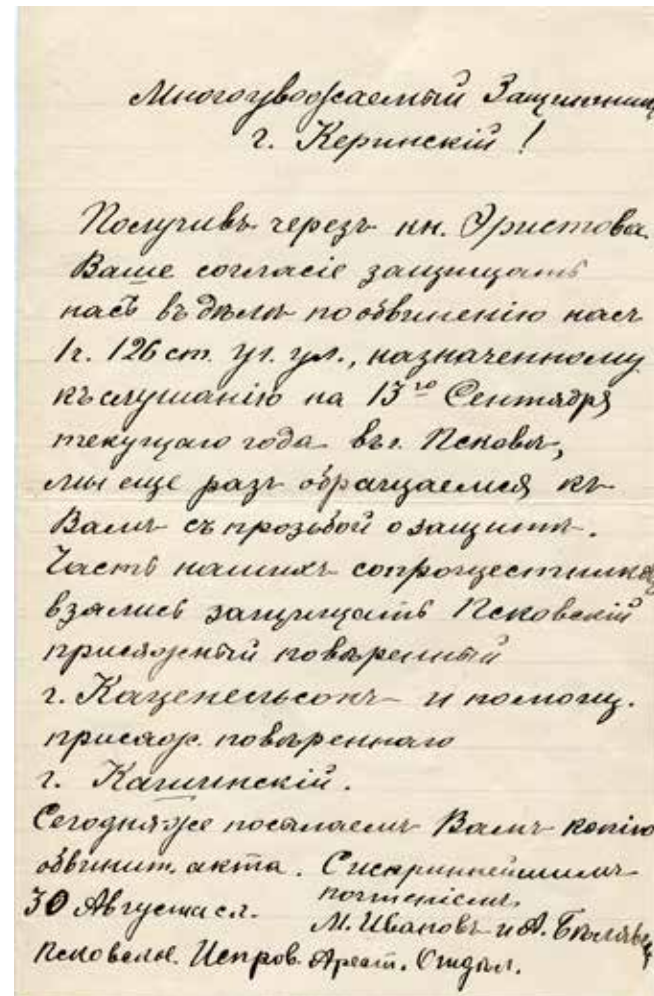 Многоуважаемый Защитник
г. Керинскій!
Получивъ черезъ кн. Эристова
Ваше согласіе защищать
насъ въ дѣлѣ по обвиненію насъ
1 ч. 126 ст. уг. ул., назначенному
къ слушанію на 13го Сентября
текущаго года въ г. Псковѣ,
мы еще разъ обращаемся къ
Вамъ съ прозьбой о защитѣ.
Часть нашихъ сопроцестниковъ
взялись защищать Псковскій
присяжный повѣренный
г. Каценельсонъ и помощ.
присяж. повѣреннаго
г. Кашинскій.
Сегодня же посылаемъ Вамъ копію
обвинит. акта. Съ искриннейшимъ
почтеніемъ
30 Августа с.г. М. Ивановъ и А.
Псковское Исправ. Арест. Отдѣл.